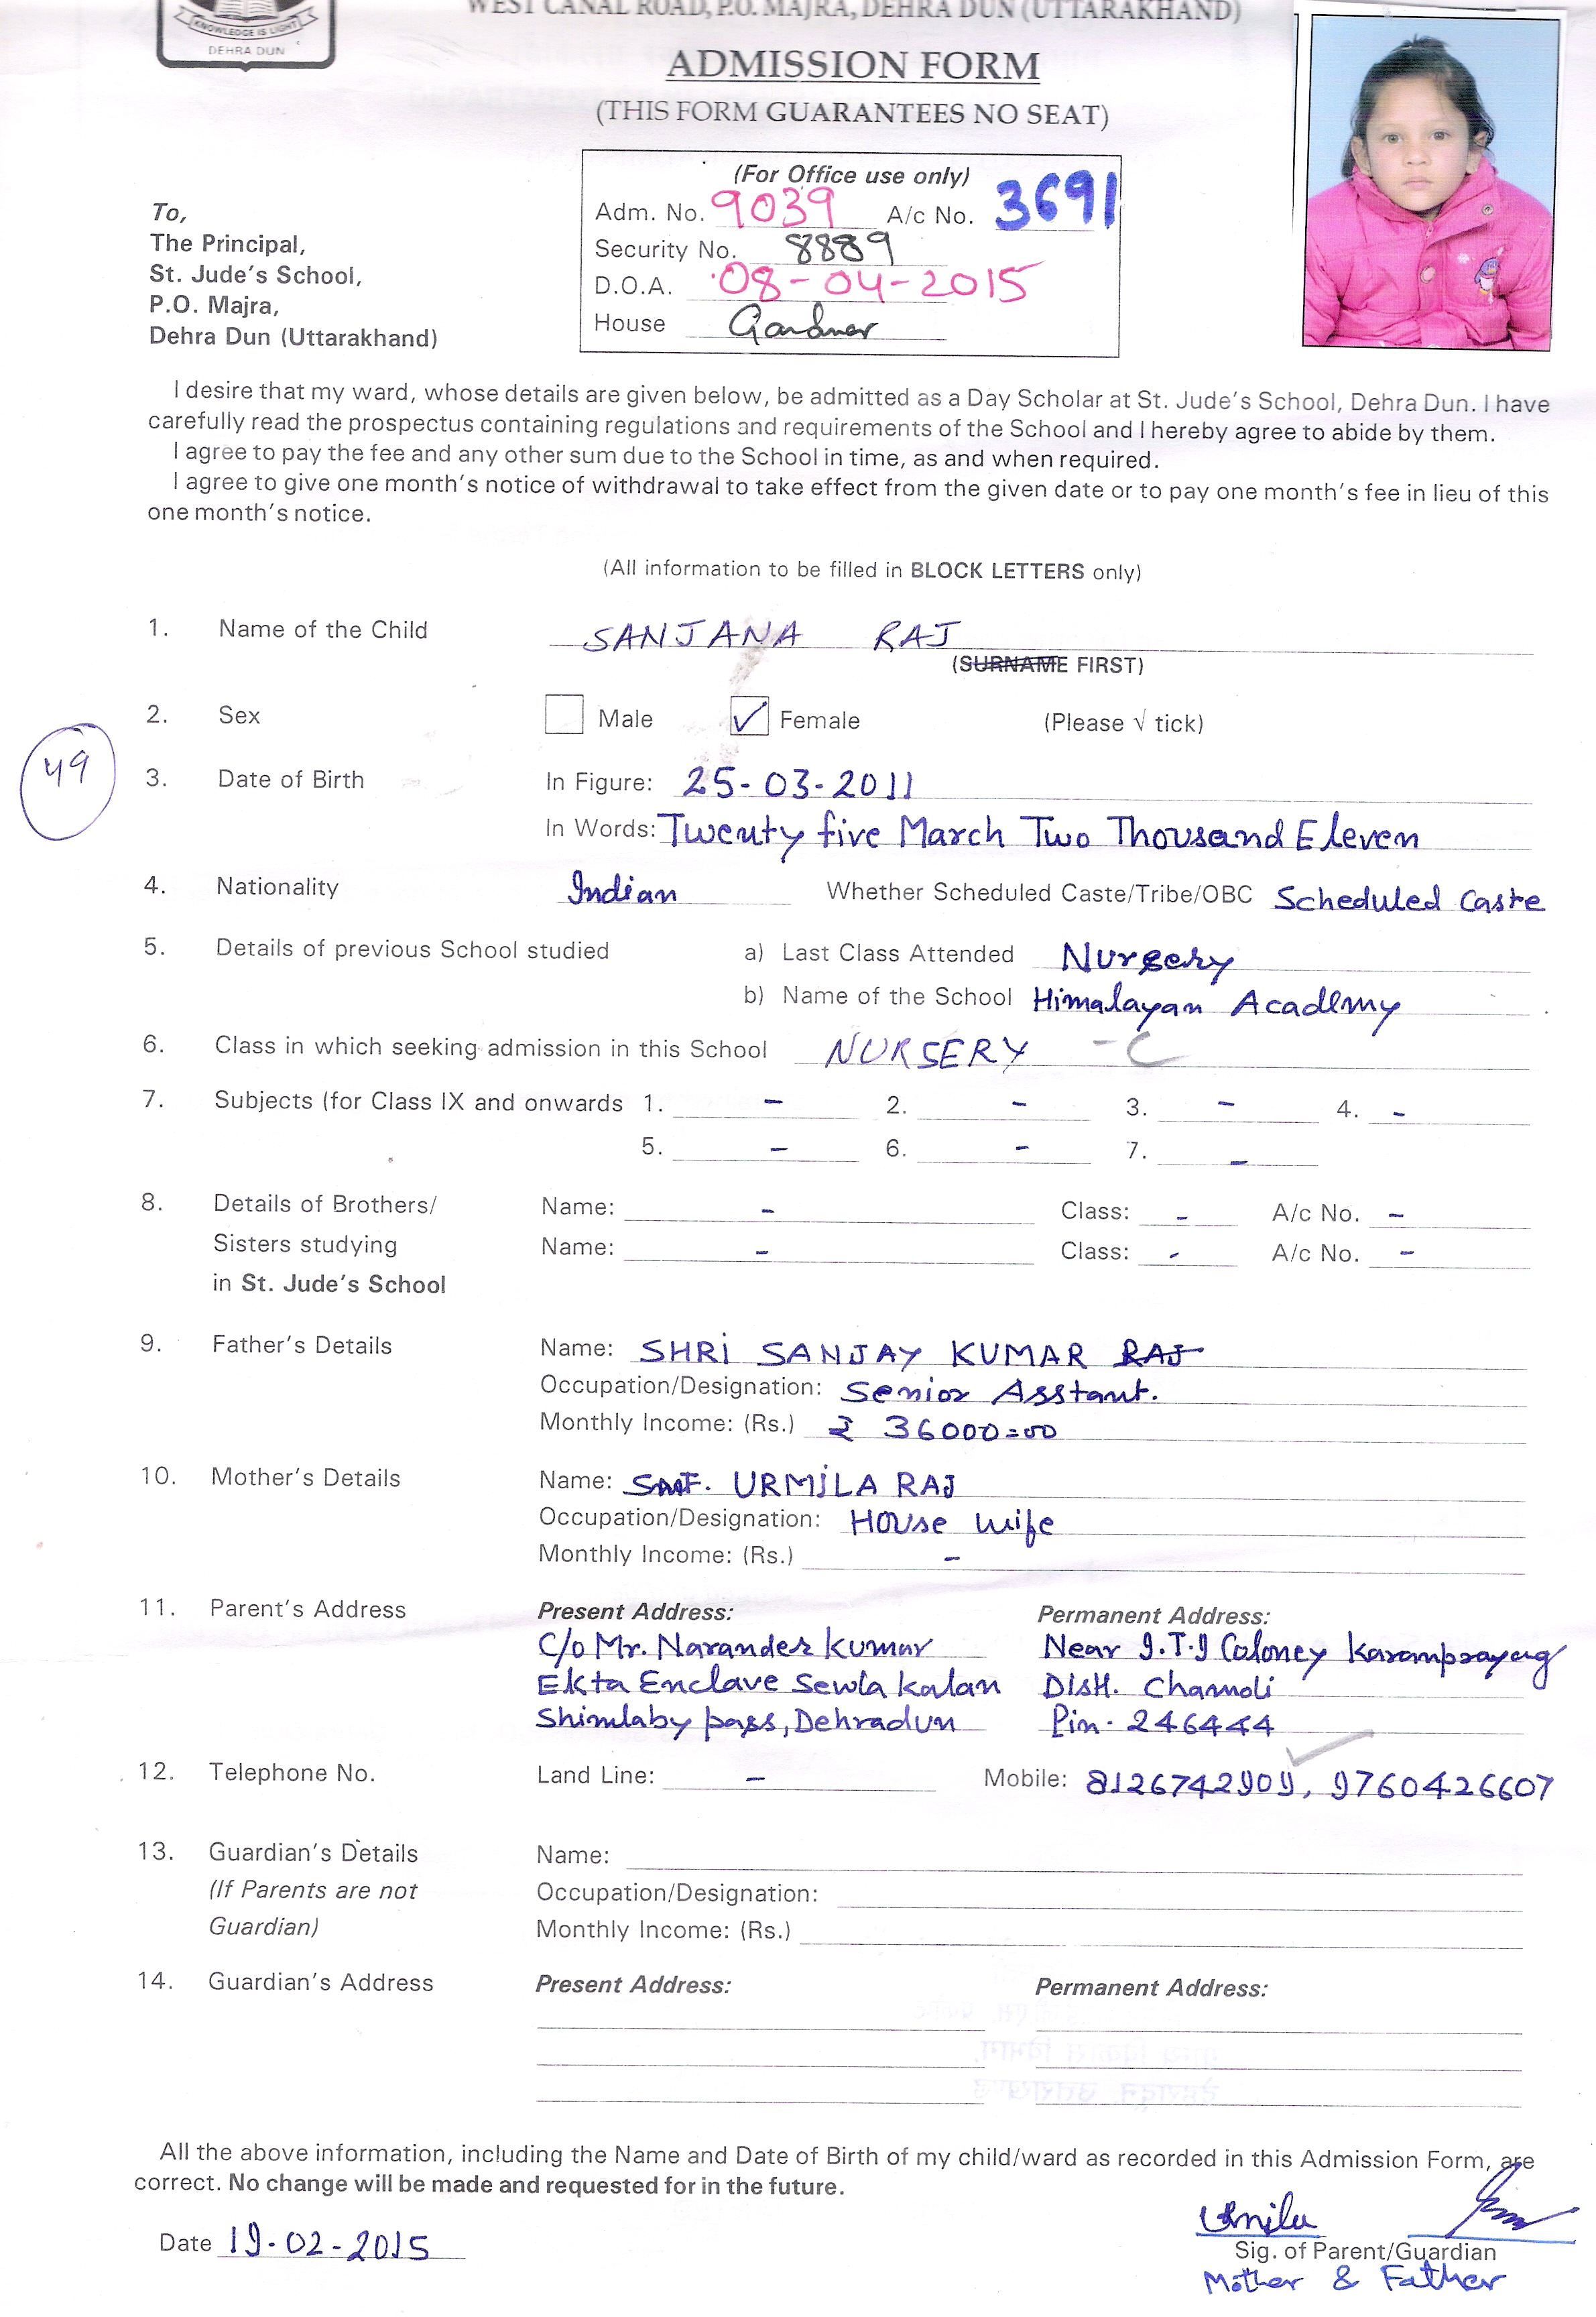 WEST CANAL ROAD, P.O. MAJRA, DEHRA DUN (UTTARAKHAND)
KNOWLEDGE IS LIGHT
DEHRA DUN
ADMISSION FORM
(THIS FORM GUARANTEES NO SEAT)
(For Office use only)
Adm. No. 9039 A/c No. 3691
Security No. 8889
D.O.A. 08-04-2015
House Gardner
To,
The Principal,
St. Jude's School,
P.O. Majra,
Dehra Dun (Uttarakhand)
I desire that my ward, whose details are given below, be admitted as a Day Scholar at St. Jude's School, Dehra Dun. I have
carefully read the prospectus containing regulations and requirements of the School and I hereby agree to abide by them.
I agree to pay the fee and any other sum due to the School in time, as and when required.
I agree to give one month's notice of withdrawal to take effect from the given date or to pay one month's fee in lieu of this
one month's notice.
(All information to be filled in BLOCK LETTERS only)
1. Name of the Child SANJANA RAJ
(SURNAME FIRST)
2. Sex Male ✓ Female (Please √ tick)
49
3. Date of Birth In Figure: 25-03-2011
In Words: Twenty five March Two Thousand Eleven
4. Nationality Indian Whether Scheduled Caste/Tribe/OBC Scheduled Caste
5. Details of previous School studied a) Last Class Attended Nursery
b) Name of the School Himalayan Academy
6. Class in which seeking admission in this School NURSERY - C
7. Subjects (for Class IX and onwards 1. - 2. - 3. - 4. -
5. - 6. - 7. -
8. Details of Brothers/ Name: - Class: - A/c No. -
Sisters studying Name: - Class: - A/c No. -
in St. Jude's School
9. Father's Details Name: SHRI SANJAY KUMAR RAJ
Occupation/Designation: Senior Asstant.
Monthly Income: (Rs.) ₹ 36000=00
10. Mother's Details Name: SMT. URMILA RAJ
Occupation/Designation: House wife
Monthly Income: (Rs.) -
11. Parent's Address Present Address: Permanent Address:
C/o Mr. Narander Kumar Near I.T.I Coloney Karampsrayag
Ekta Enclave Sewla Kalan Distt. Chamoli
Shimlaby pass, Dehradun Pin- 246444
12. Telephone No. Land Line: - Mobile: 8126742909, 9760426607
13. Guardian's Details Name:
(If Parents are not Occupation/Designation:
Guardian) Monthly Income: (Rs.)
14. Guardian's Address Present Address: Permanent Address:
All the above information, including the Name and Date of Birth of my child/ward as recorded in this Admission Form, are
correct. No change will be made and requested for in the future.
Date 19-02-2015 Urmila
Sig. of Parent/Guardian
Mother & Father